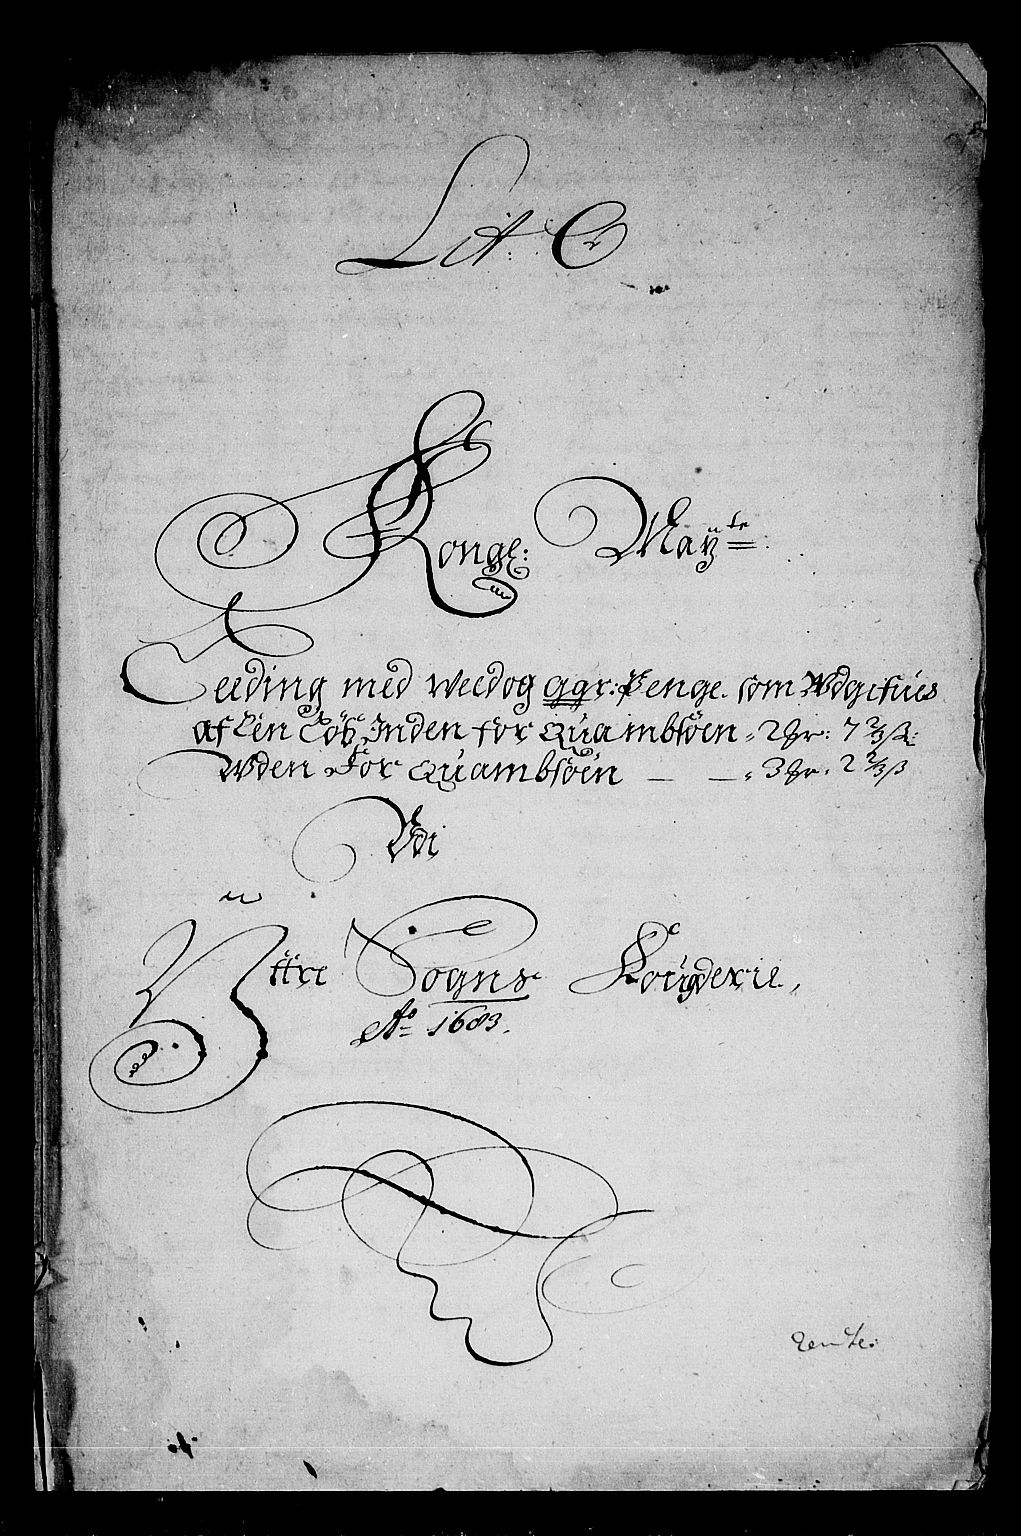 Lit. C
Kongl: Maÿ:te
Leeding med Weedog ggr: Penge som Wdgifues
af Een Løb Inden for Quambsøen, 2 gr: 7 2/3 ß:
Wden For Quambsøen — — , 3 gr. 2 2/3 ß
Vdi
Yttre Sogns Fougderie,
Ao 1683.